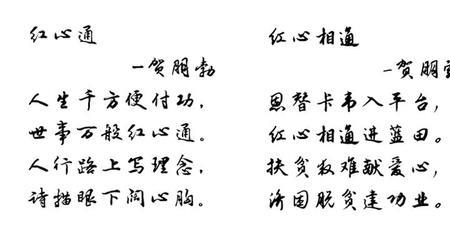 红心通
—贺朋勃
人生千方便付功，
世事万般红心通。
人行路上写理念，
请描眼下阔心胸。
红心相通
—贺朋
恩替卡韦入平台，
红心相通进蓝田。
扶贫救难献爱心，
济困脱贫建功业。